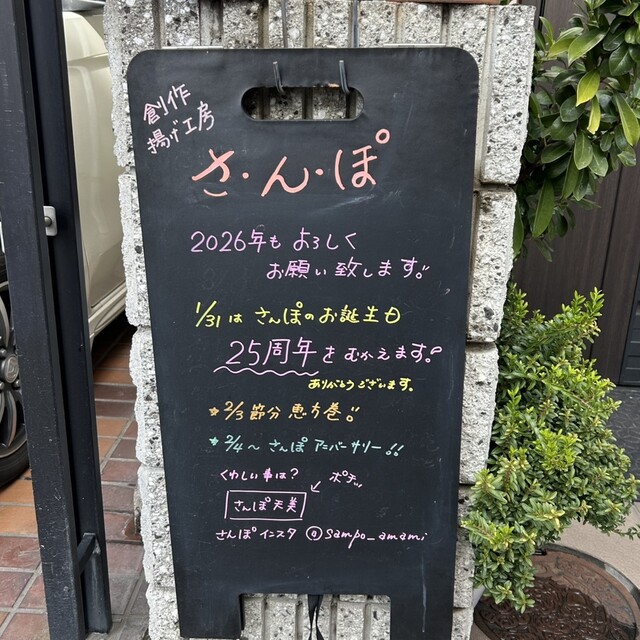 創作
揚げ工房
さ・ん・ぽ
2026年も よろしく
お願い致します!!
1/31は さんぽのお誕生日
25周年をむかえます!
ありがとうございます。
★2/3 節分 恵方巻!!
★2/4〜 さんぽ アニバーサリー!!
くわしい事は?
ポチッ
さんぽ天美
さんぽインスタ @sampo_amami